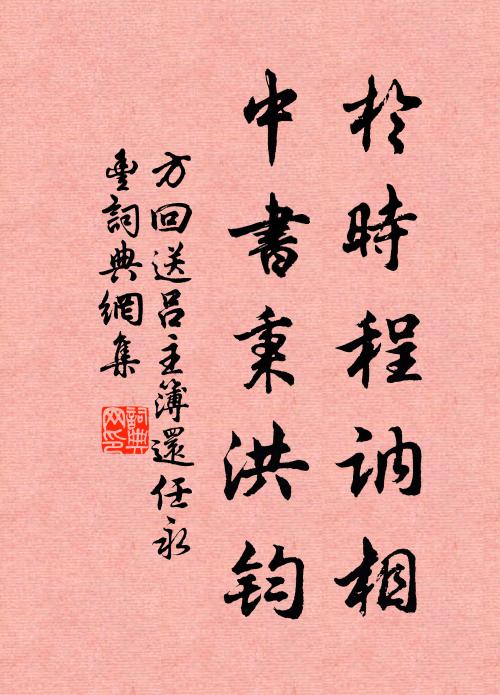 於時程訥相
中書秉洪鈞
方回送呂主簿還任永
豐詞典網集
詞典网印